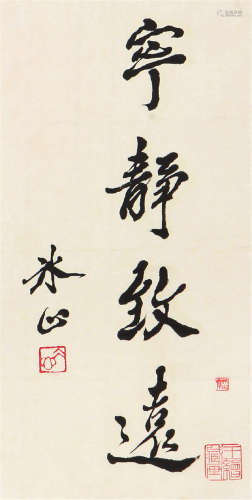 寧靜致遠
冰山